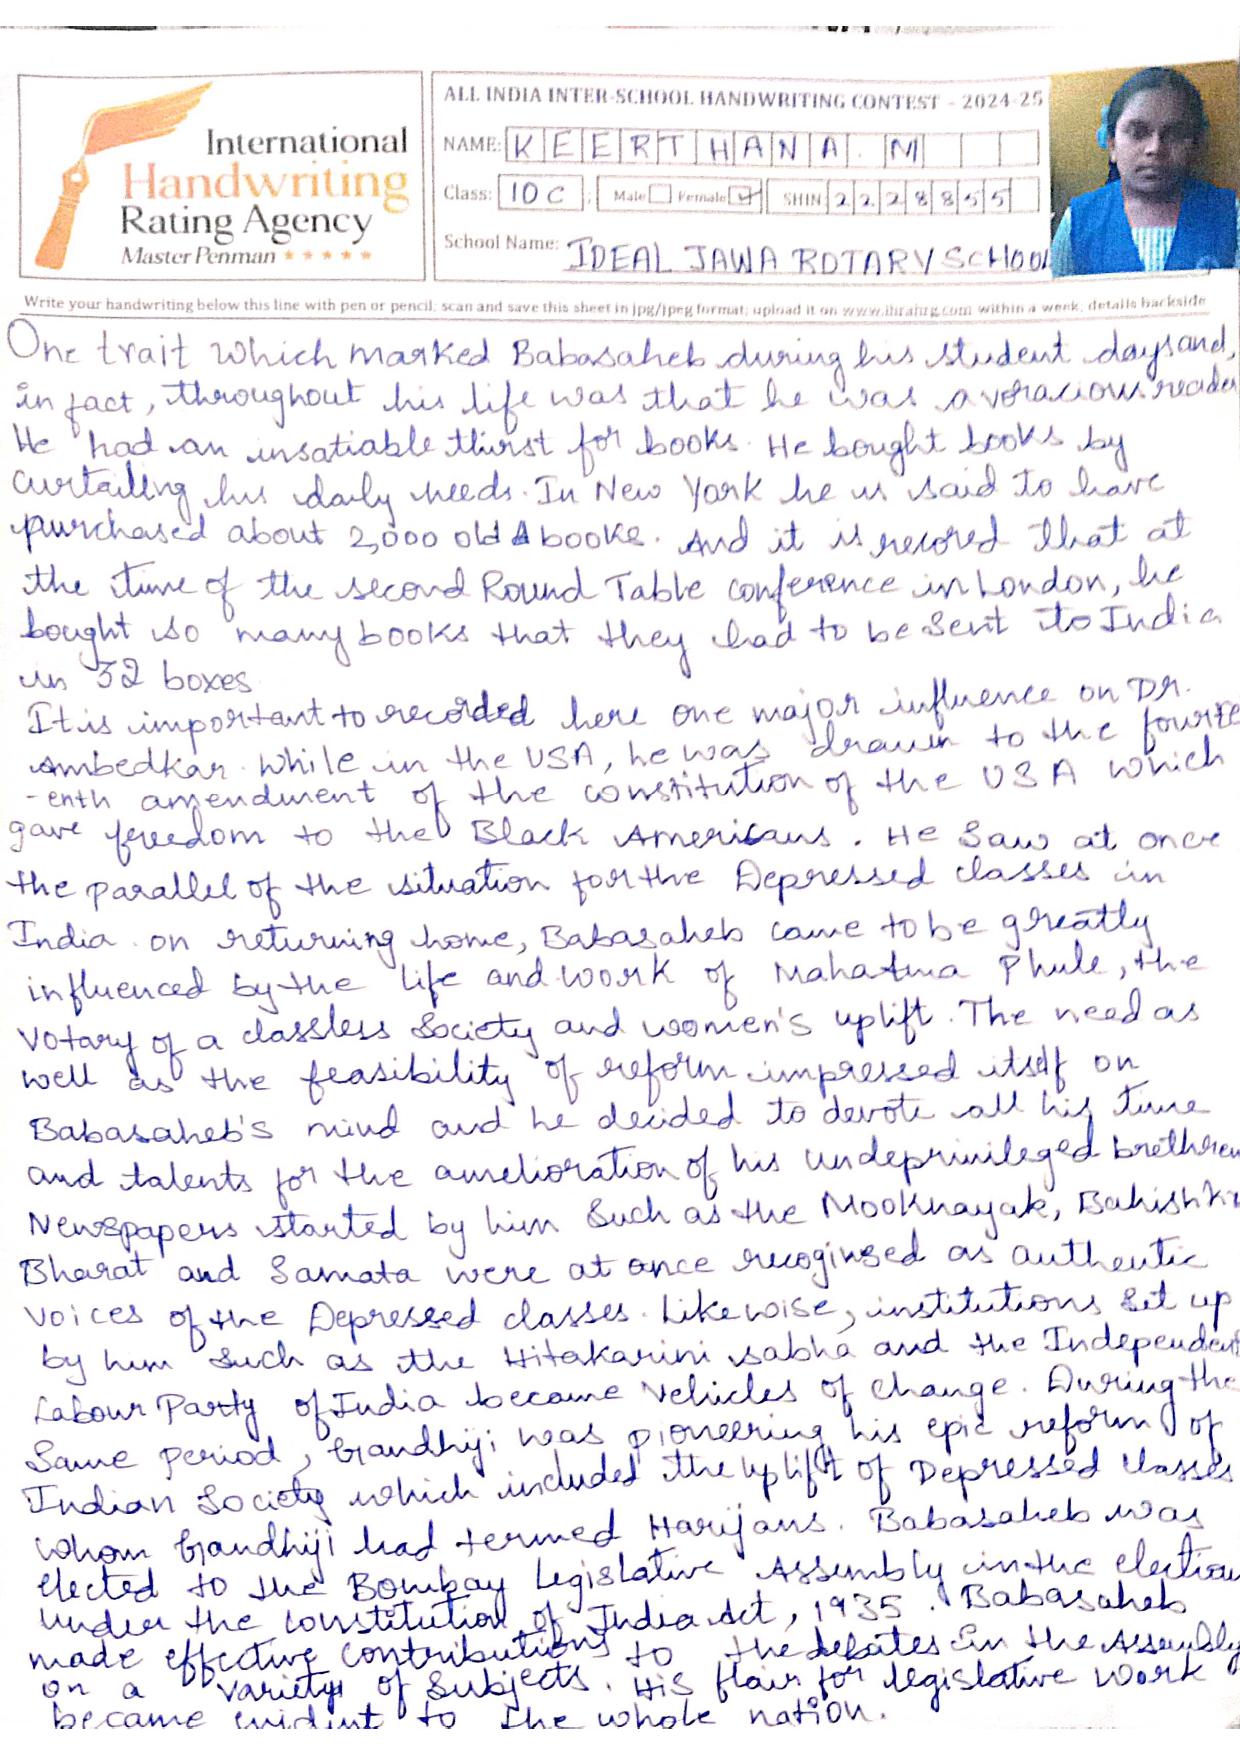 International
Handwriting
Rating Agency
Master Penman
ALL INDIA INTER-SCHOOL HANDWRITING CONTEST - 2024-25
NAME: KEERTHANA. M
Class: 10 C Male Female SHIN 2228855
School Name: IDEAL JAWA ROTARY SCHOOL
Write your handwriting below this line with pen or pencil; scan and save this sheet in jpg/jpeg format; upload it on www.ihrahrg.com within a week; details backside
One trait which marked Babasaheb during his student days and,
in fact, throughout his life was that he was a voracious reader
He had an insatiable thirst for books. He bought books by
curtailing his daily needs. In New York he is said to have
purchased about 2,000 old books. And it is recored that at
the time of the second Round Table conference in London, he
bought so many books that they had to be sent to India
in 32 boxes
It is important to recorded here one major influence on Dr.
Ambedkar. While in the USA, he was drawn to the fourte
-enth amendment of the constitution of the USA which
gave freedom to the Black Americans. He saw at once
the parallel of the situation for the Depressed classes in
India. on returning home, Babasaheb came to be greatly
influenced by the life and work of Mahatma Phule, the
votary of a classless society and women's uplift. The need as
well as the feasibility of reform impressed itself on
Babasaheb's mind and he decided to devote all his time
and talents for the amelioration of his undeprivileged brethren
Newspapers started by him such as the Mooknayak, Bahishkr
Bharat and Samata were at once recoginsed as authentic
voices of the Depressed classes. Likewise, institutions set up
by him such as the Hitakarini sabha and the Independent
Labour Party of India became vehicles of change. During the
same period, Gandhiji was pioneering his epic reform of
Indian Society which included the uplift of Depressed classes
whom Gandhiji had termed Harijans. Babasaheb was
elected to the Bombay Legislative Assembly in the election
under the constitution of India Act, 1935. Babasaheb
made effective contributions to the debates in the Assembly
on a variety of subjects. His flair for legislative work
became evident to the whole nation.